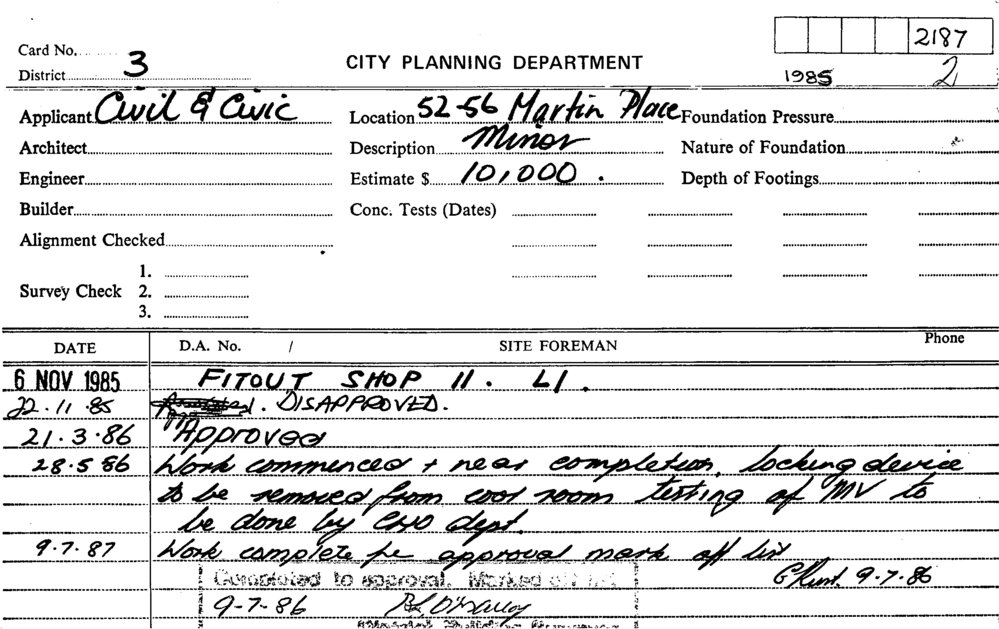 2187
Card No.
District 3
CITY PLANNING DEPARTMENT
1985 2
Applicant Civil & Civic Location 52-56 Martin Place Foundation Pressure
Architect Description Minor Nature of Foundation
Engineer Estimate $ 10,000. Depth of Footings
Builder Conc. Tests (Dates)
Alignment Checked
1.
Survey Check 2.
3.
DATE D.A. No. / SITE FOREMAN Phone
6 NOV 1985 FITOUT SHOP 11. L1.
22.11.85 DISAPPROVED.
21.3.86 Approved
28.5.86 Work commenced + near completion, locking device
to be removed from cool room testing of MV to
be done by CHO dept.
9.7.87 Work complete for approval mark off list
9-7-86
Completed to approval. Marked off list
9-7-86